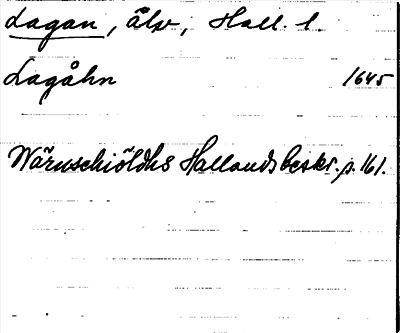 Lagan, älv, Hall. l.
Lagåhn 1645
Wärnschiöldhs Hallandsbeskr. p. 161.